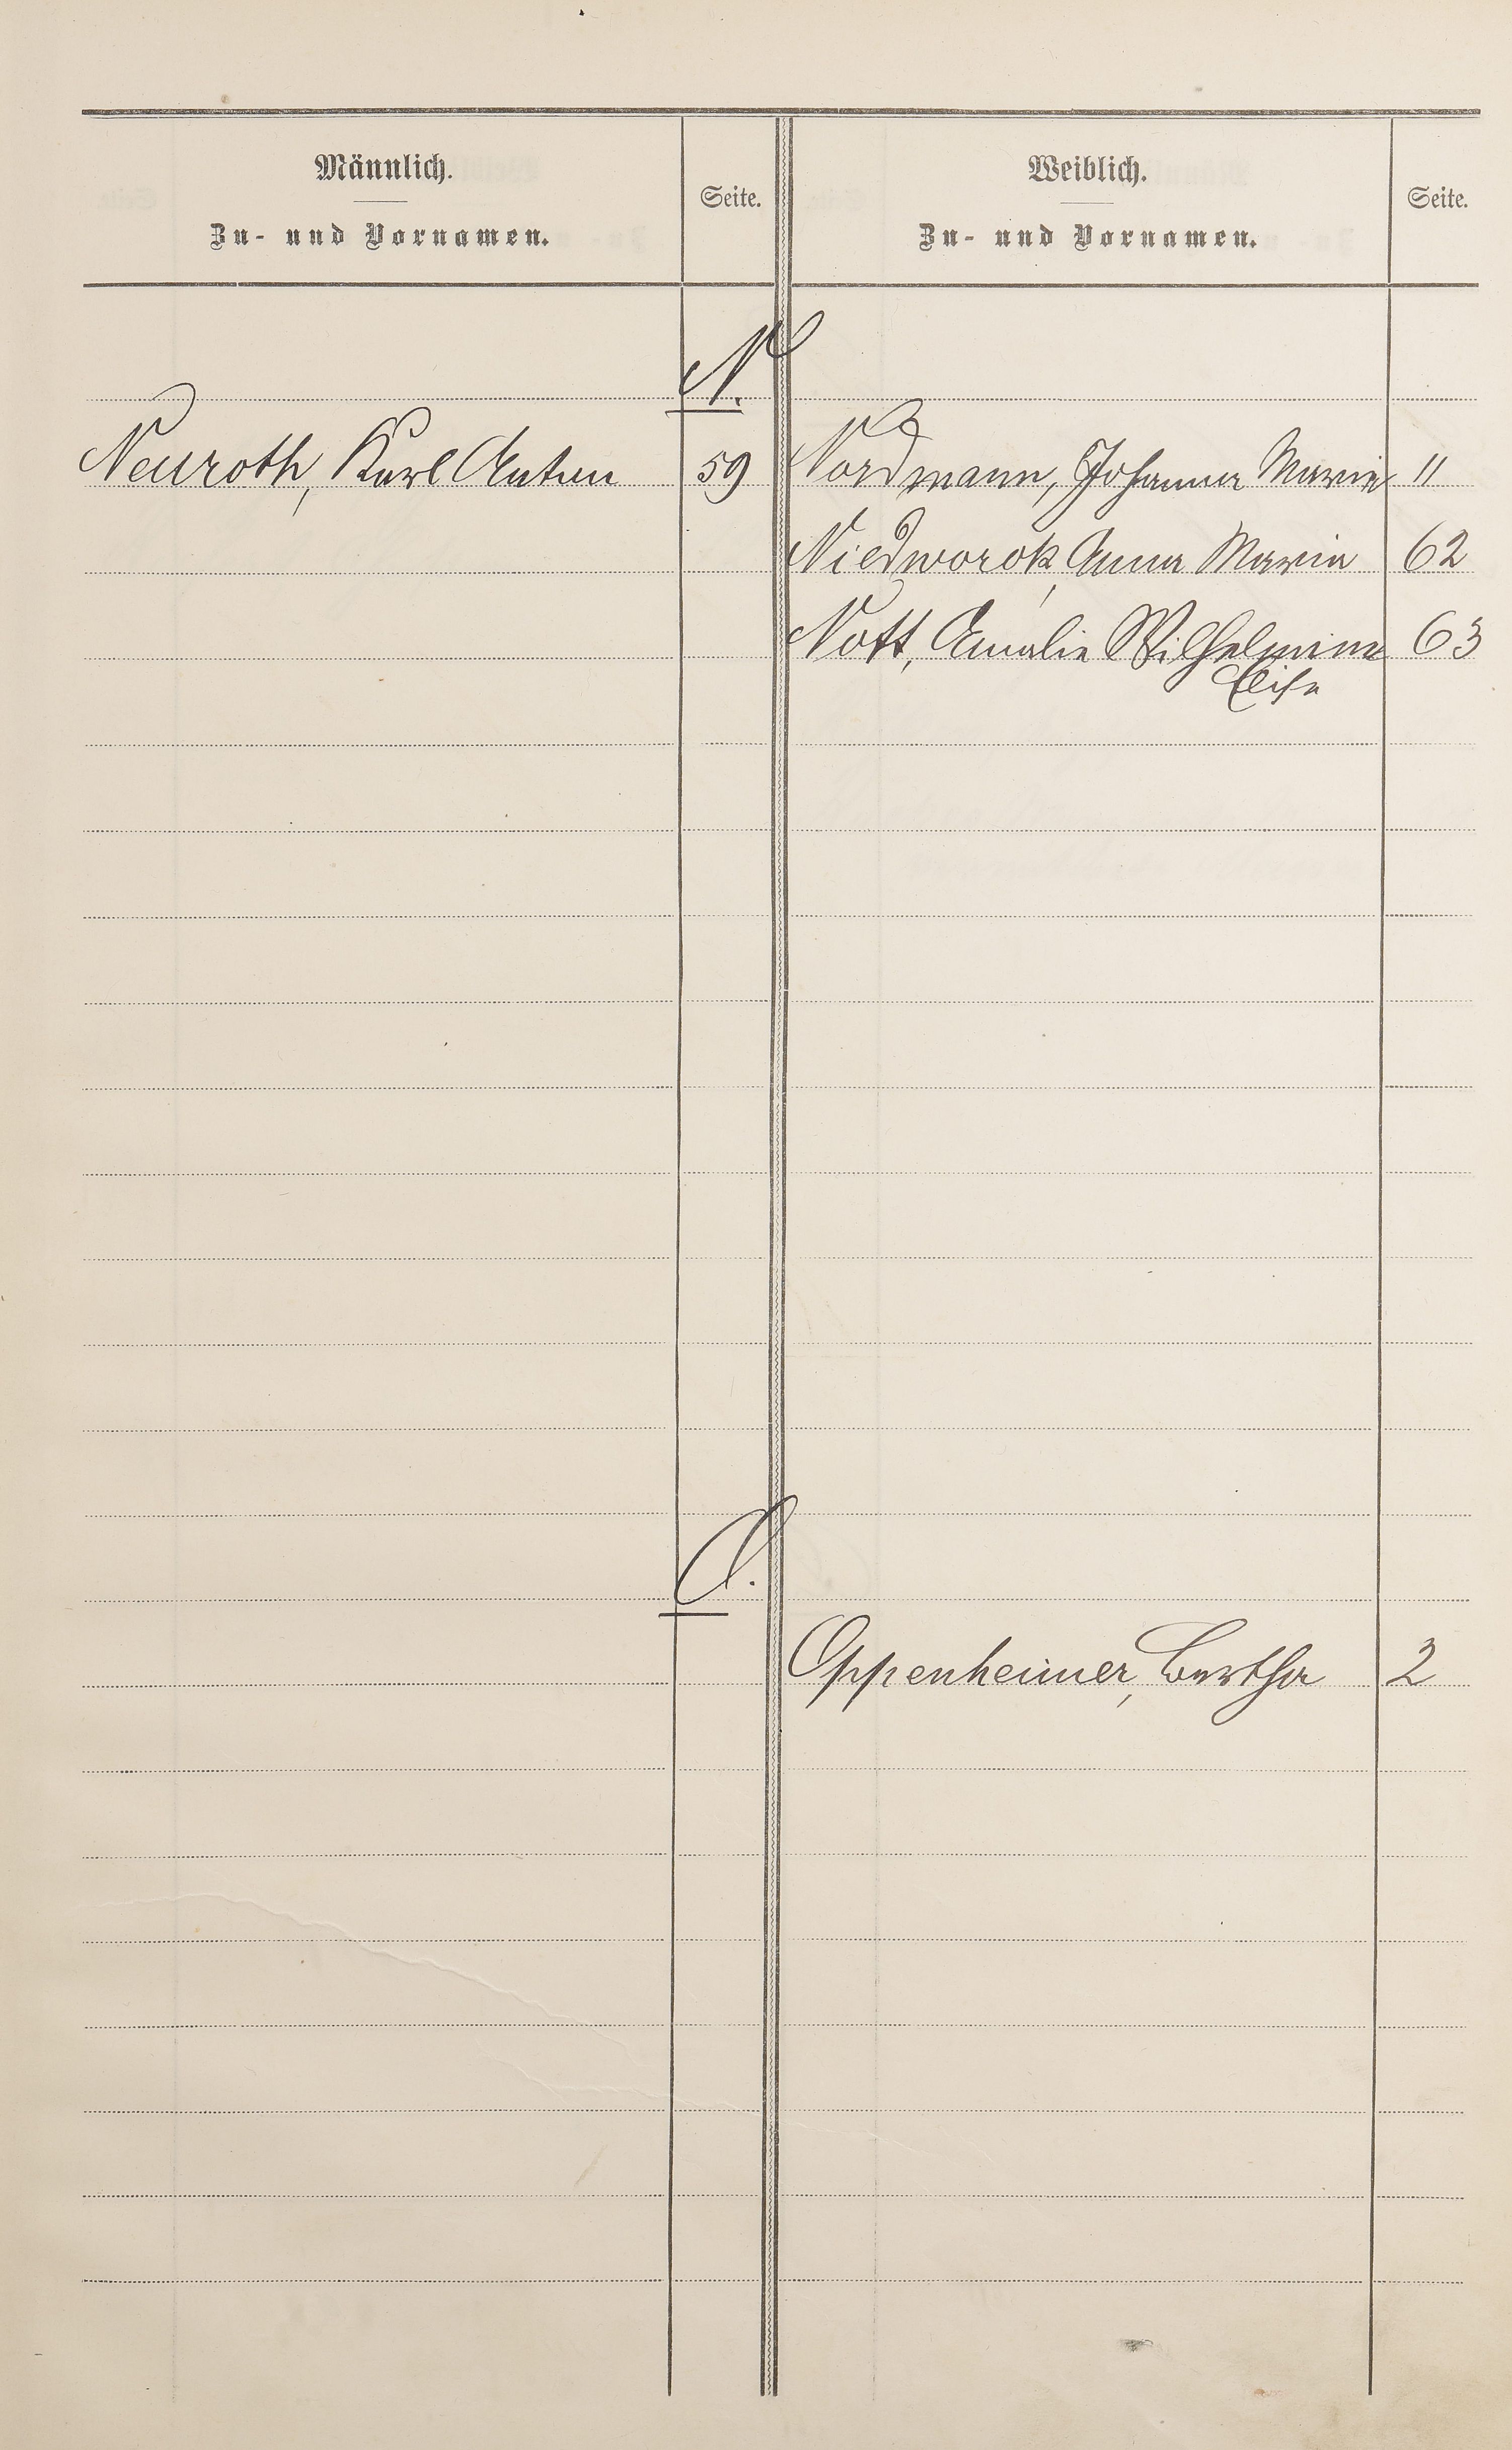 Männlich.
Zu- und Vornamen.
Seite.
Weiblich.
Zu- und Vornamen.
Seite.
N.
Neuroth, Karl Anton 59
Nordmann, Johanna Marie 11
Niedworok, Anna Maria 62
Nott, Amalie Wilhelmine 63
Elise
O.
Oppenheimer, Bertha 2